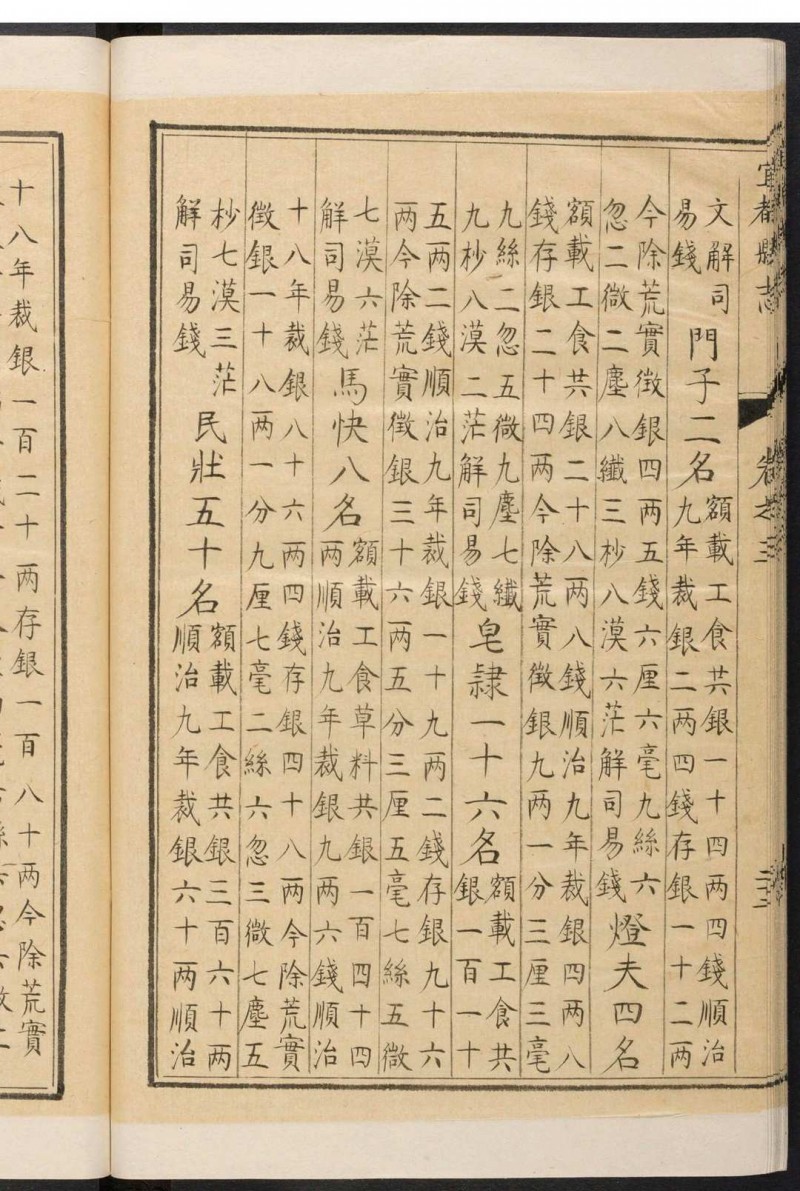 宜都縣志 卷之三
文解司
易錢
門子二名
額載工食共銀一十四两四錢順治
九年裁銀二两四錢存銀一十二两
今除荒實徴銀四两五錢六厘六毫九絲六
忽二微二塵八纖三杪八漠六茫解司易錢
燈夫四名
額載工食共銀二十八两八錢順治九年裁銀四两八
錢存銀二十四两今除荒實徴銀九两一分三厘三毫
九絲二忽五微九塵七纖
九杪八漠二茫解司易錢
皂隷一十六名
額載工食共
銀一百一十
五两二錢順治九年裁銀一十九两二錢存銀九十六
两今除荒實徴銀三十六两五分三厘五毫七絲五微
七漠六茫
解司易錢
馬快八名
額載工食草料共銀一百四十四
两順治九年裁銀九两六錢順治
十八年裁銀八十六两四錢存銀四十八两今除荒實
徴銀一十八两一分九厘七毫二絲六忽三微七塵五
杪七漠三茫
解司易錢
民壯五十名
額載工食共銀三百六十两
順治九年裁銀六十两順治
十八年裁銀一百二十两存銀一百八十两今除荒實